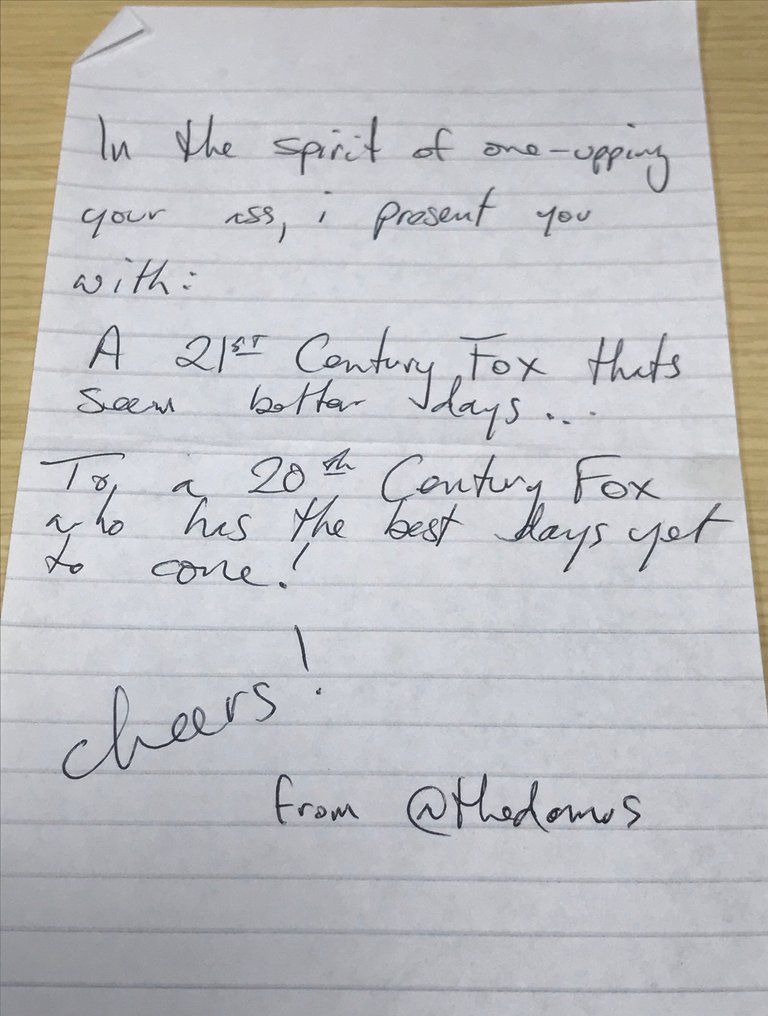 In the spirit of one-upping
your ass, i present you
with:
A 21ST Century Fox thats
seen better days...
To, a 20th Century Fox
who has the best days yet
to come!
cheers!
from @thedomus